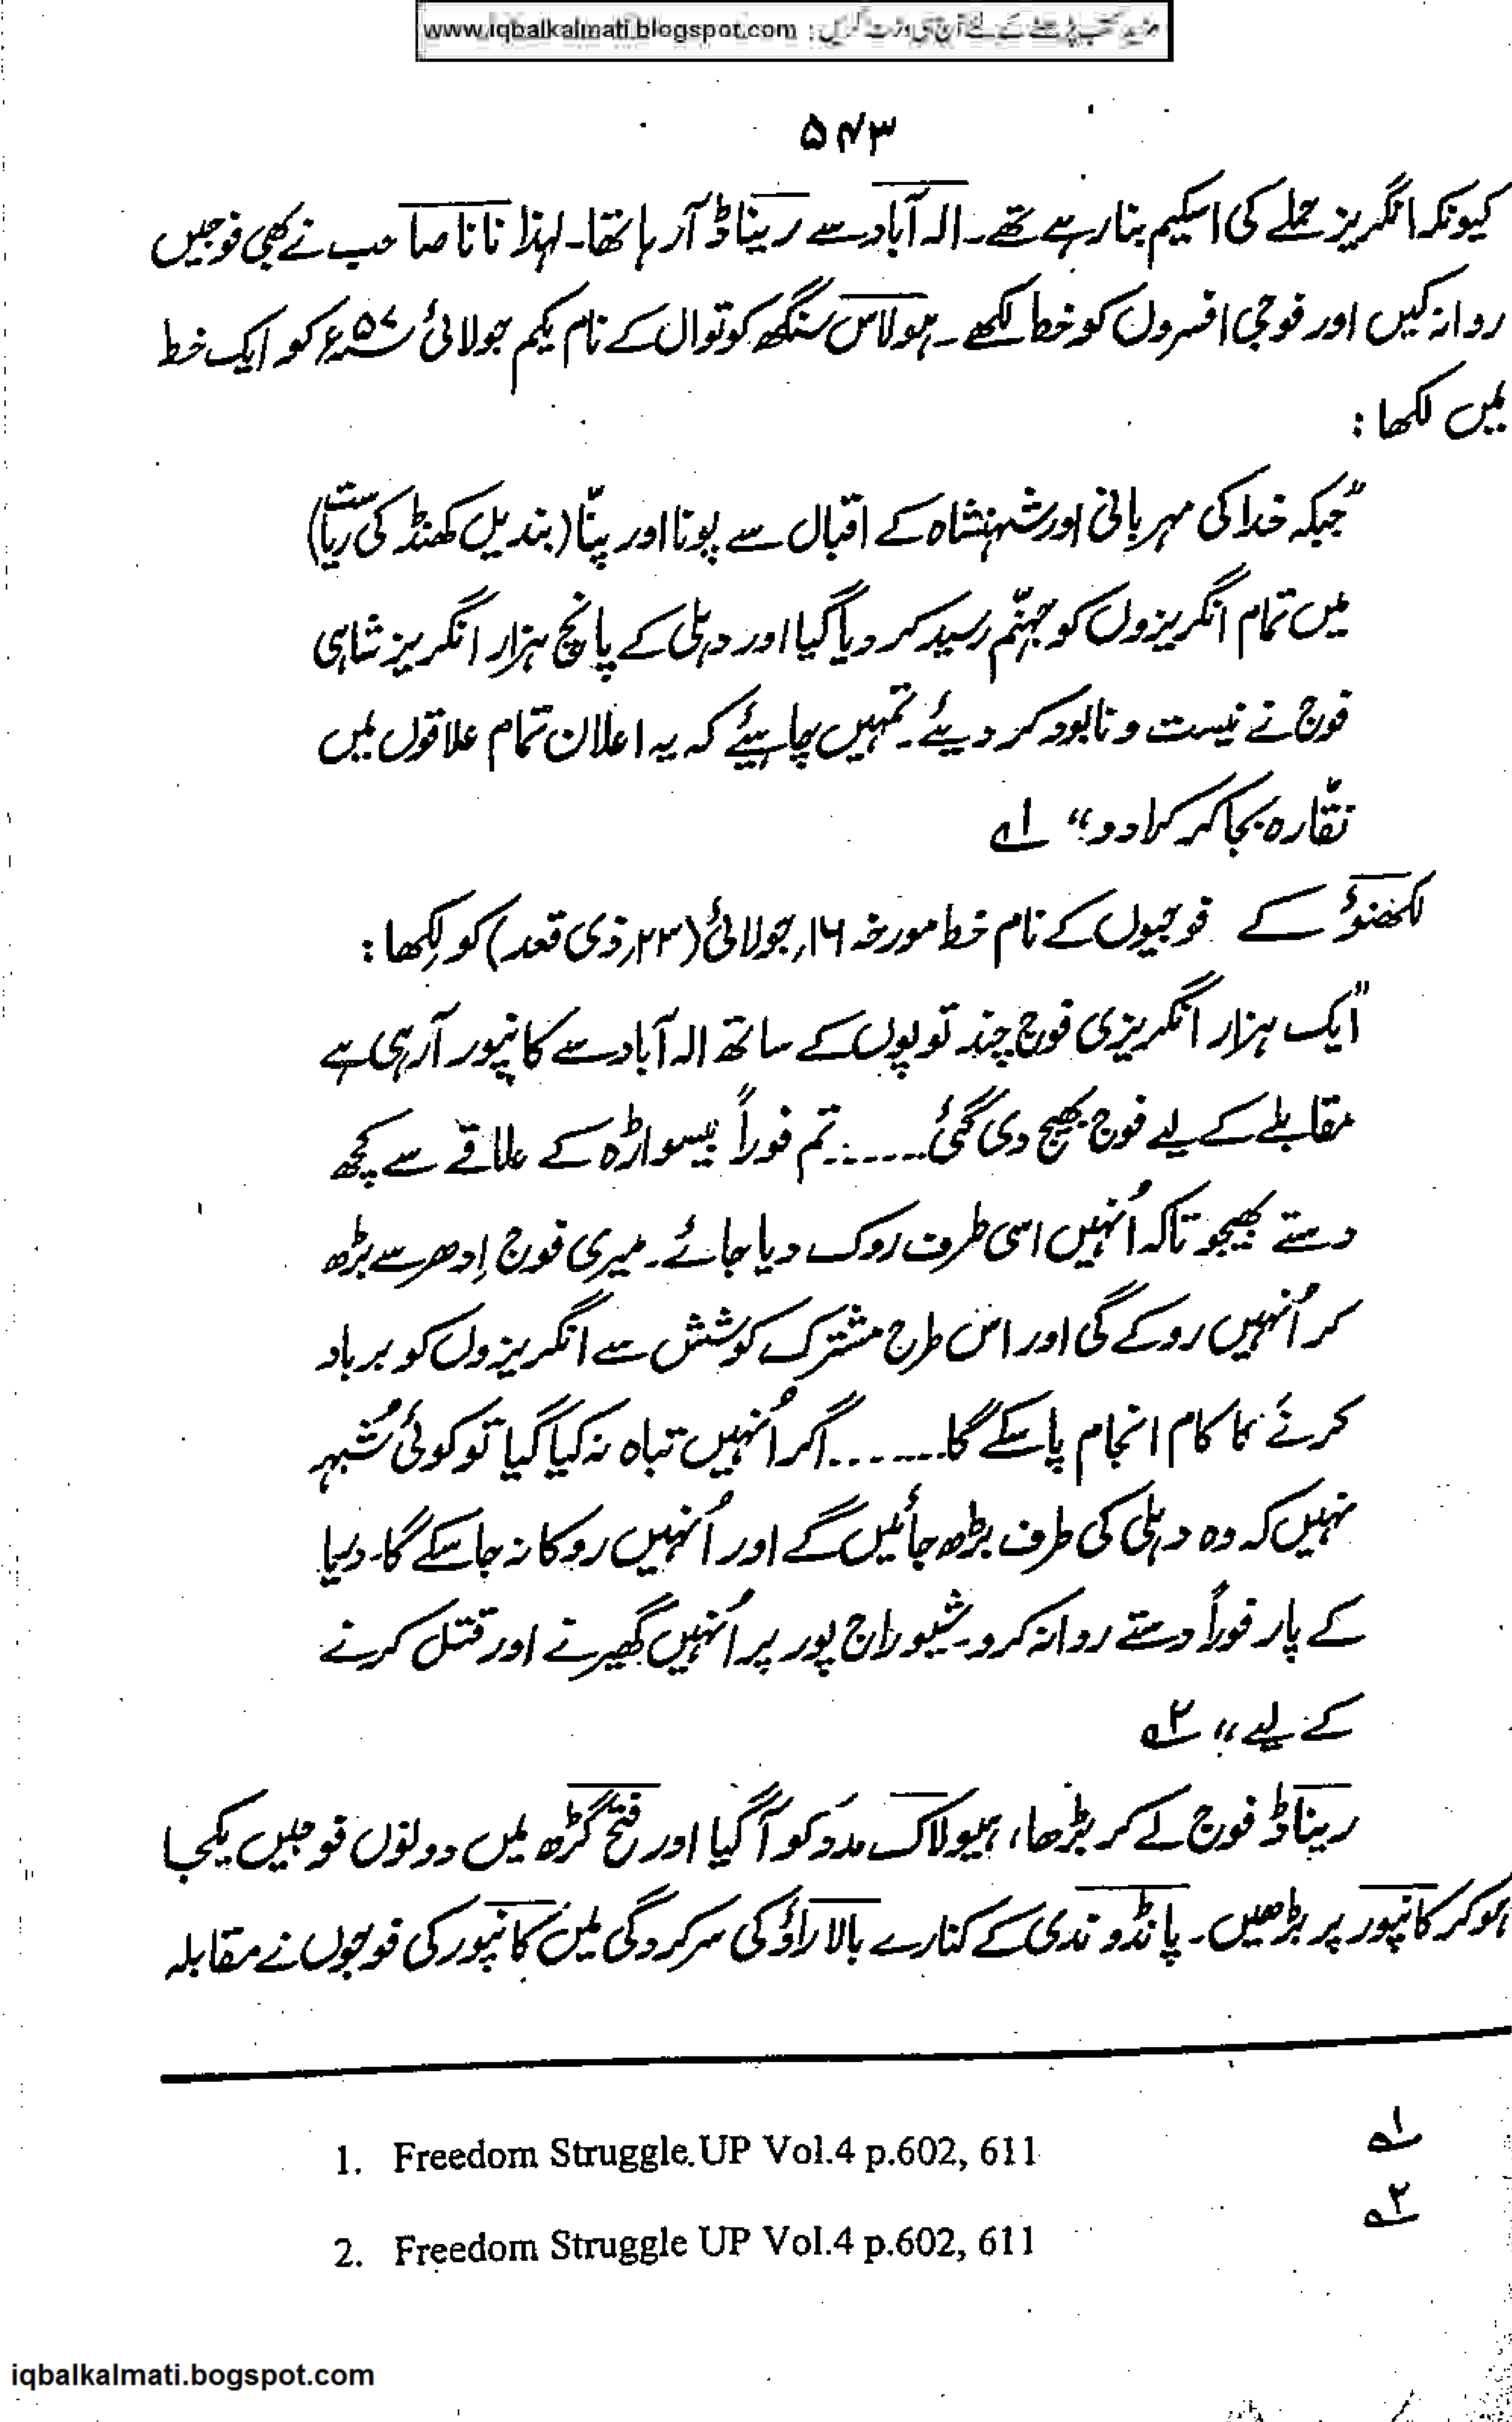 مزید کتب پڑھنے کے لئے آج ہی وزٹ کریں : www.iqbalkalmati.blogspot.com
۵۴۳
کیونکہ انگریز حملے کی اسکیم بنا رہے تھے۔ الہ آباد سے ریناڈ آ رہا تھا۔ لہٰذا نانا صاحب نے بھی فوجیں
روانہ کیں اور فوجی افسروں کو خط لکھے۔ ہولاس سنگھ کوتوال کے نام یکم جولائی ۵۷ء کو ایک خط
میں لکھا:
"جبکہ خدا کی مہربانی اور شہنشاہ کے اقبال سے پونا اور پنّا (بندیل کھنڈ کی ریاست)
میں تمام انگریزوں کو جہنّم رسید کر دیا گیا اور دہلی کے پانچ ہزار انگریز شاہی
فوج نے نیست و نابود کر دیئے۔ تمہیں چاہیئے کہ یہ اعلان تمام علاقوں میں
نقّارہ بجا کر کرا دو" ۱ے
لکھنوٴ کے فوجیوں کے نام خط مورخہ ۱۶؍جولائی (۲۳؍ذی قعد) کو لِکھا:
"ایک ہزار انگریزی فوج چند توپوں کے ساتھ الہ آباد سے کانپور آ رہی ہے
مقابلے کے لیے فوج بھیج دی گئی۔۔۔۔۔۔ تم فوراً بیسواڑہ کے علاقے سے کچھ
دستے بھیجو تاکہ اُنہیں اسی طرف روک دیا جائے۔ میری فوج اِدھر سے بڑھ
کر اُنہیں روکے گی اور اس طرح مشترک کوشش سے انگریزوں کو برباد
کرنے کا کام انجام پا سکے گا۔۔۔۔۔۔۔ اگر اُنہیں تباہ نہ کیا گیا تو کوئی شُبہہ
نہیں کہ وہ دہلی کی طرف بڑھ جائیں گے اور اُنہیں روکا نہ جا سکے گا۔ دریا
کے پار فوراً دستے روانہ کرو۔ شیوراج پور پر اُنہیں گھیرنے اور قتل کرنے
کے لیے" ۲ے
ریناڈ فوج لے کر بڑھا، ہیولاک مدد کو آ گیا اور فتح گڑھ میں دونوں فوجیں یکجا
ہو کر کانپور پر بڑھیں۔ پانڈو ندی کے کنارے بالا راوٴ کی سرکردگی میں کانپور کی فوجوں نے مقابلہ
۱ے 1. Freedom Struggle UP Vol.4 p.602, 611
۲ے 2. Freedom Struggle UP Vol.4 p.602, 611
iqbalkalmati.bogspot.com